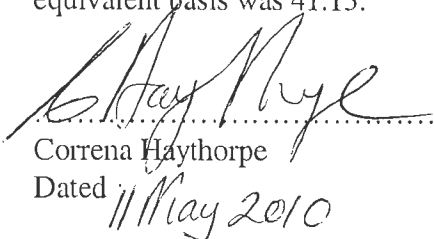 equivalent basis was 41.15.
Correna Haythorpe
Dated 11 May 2010